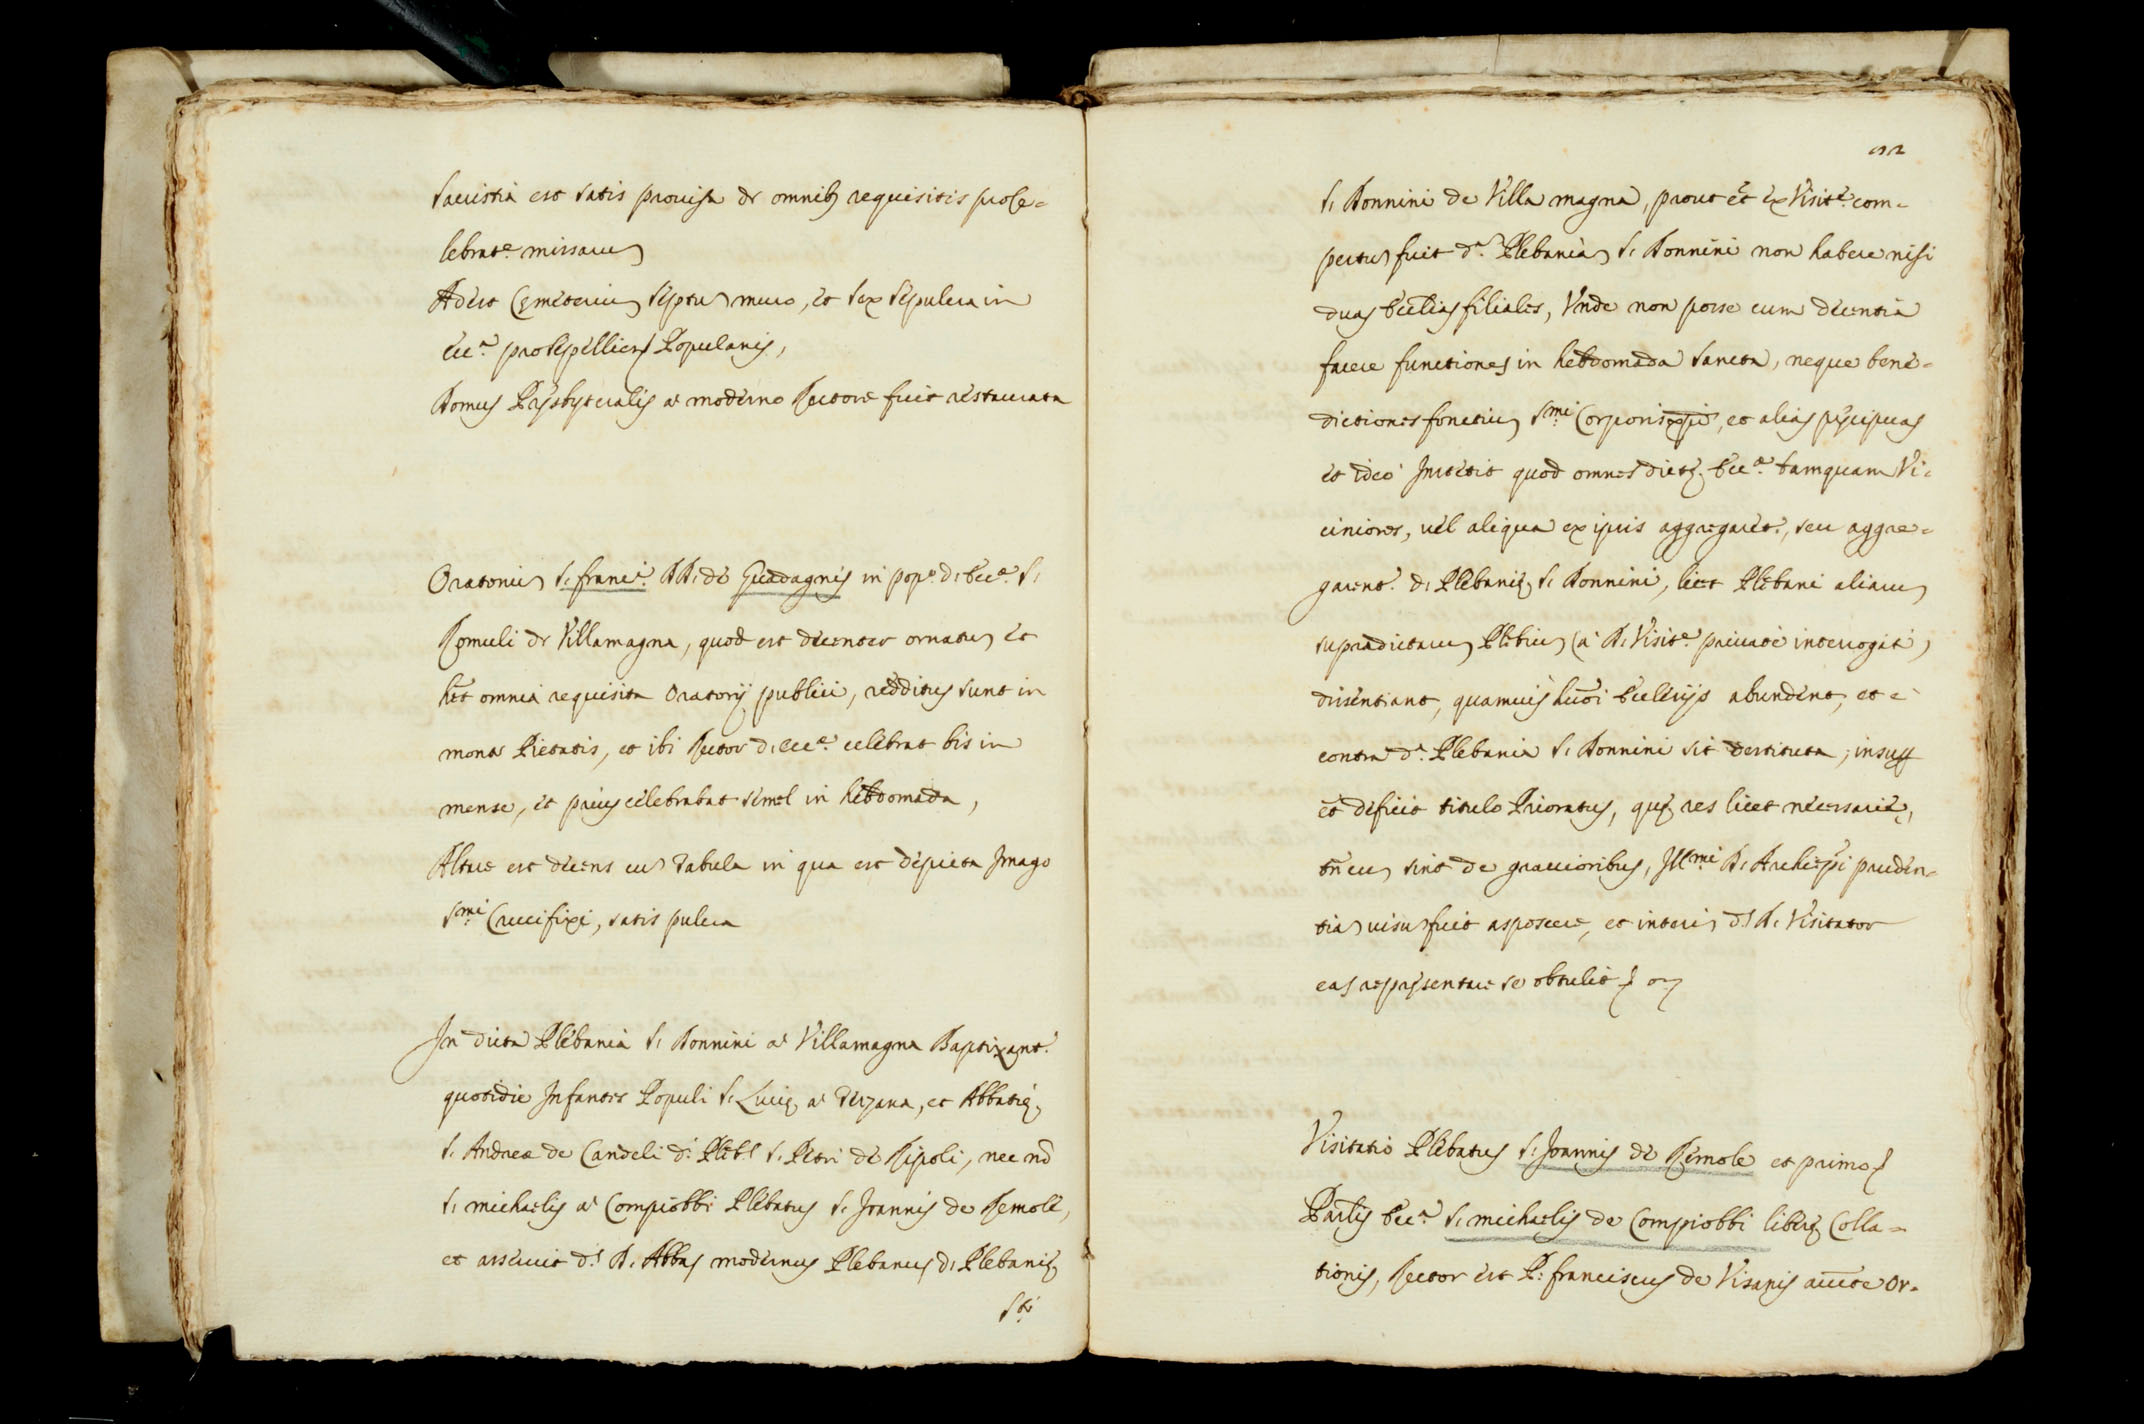 Sacristia est satis prouisa de omnibus requisitis pro ce-
lebrat.e missarum
Adest Cęmeterium septum muro, et sex sepulcra in
ecc.a pro sepelliend. Popularis,
Domus Presbyteralis a moderno Rectore fuit restaurata
Oratorium S. Franc.i DD. de Guadagnis in pop.o d. Ecc.e S.
Romuli de Villamagna, quod est decenter ornatum et
het omnia requisita Oratorij publici, redditus sunt in
monte Pietatis, et ibi Rector d. ecc.e celebrat bis in
mense, et prius celebrabat semel in hebdomada,
Altare est decens cum Tabula in qua est depicta Imago
S.mi Crucifixi, satis pulcra
In dicta Plebania S. Donnini a Villamagna Baptizant.r
quotidie Infantes Populi S. Lucię a Terzana, et Abbatię
S. Andreae de Candeli d. Pleb.s S. Petri de Ripoli, nec nō
S. Michaelis a Compiobbi Plebatus S. Joannis de Remole,
et asseruit d.s D. Abbas modernus Plebanus d. Plebanię
S.ti
S. Donnini de Villa magna, prout et ex Visit.e com-
pertum fuit d.a Plebaniam S. Donnini non habere nisi
duas Ecclias filiales, Vnde non posse cum decentia
facere functiones in hebdomada Sancta, neque bene-
dictiones fontium S.mi Corporis xpi, et alias precipuas
et ideo Institit quod omnes dictę Ecc.e tamquam Vi-
ciniores, uel aliqua ex ipsis aggregaret.r, seu aggre-
garent.r d. Plebanię S. Donnini, licet Plebani aliarum
supradictarum Plebium (a D. Visit.e priuate interrogati)
dissentiant, quamuis hmōi Ecclesijs abundent, et e
contra d.a Plebania S. Donnini sit destituta; insup
et deficit titulo Prioratus, quę res licet necessarię,
tn̄ cum sint de grauioribus, Ill.mi D. Archiep̄i pruden-
tiam uisum fuit asposcere, et interim d.s D. Visitator
eas representare se obtulit
Visitatio Plebatus S. Joannis de Remole et primo
Par̄lis Ecc.a S. Michaelis de Compiobbi liberę Colla-
tionis, Rector est P. Franciscus de Visanis aucte Or-